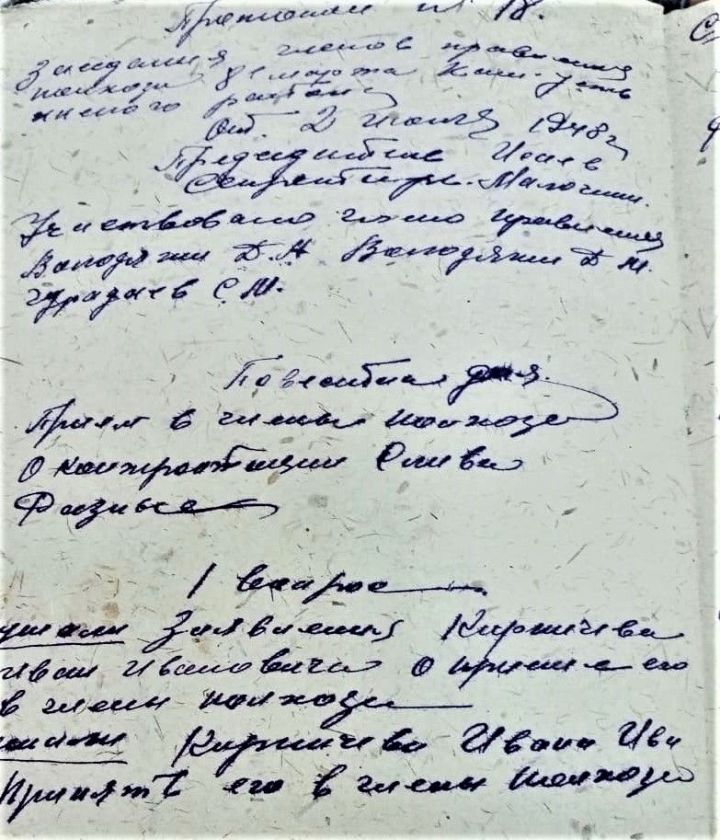 Протокол № 18.
Заседания членов правления
колхоза
района
От. 2 Июля 1948 г.
Председатель Исаев
Секретарь.
Участвовало члено правления
Володяхин Д. А. Володяхин Д. М.
С. М.
Повестка дня.
Прием в члены колхоза
О контрактации Слива
Разные
1 вопрос
Заявления Кирпичева
Иван Ивановича о приеме его
в члены колхоза
Кирпичева Ивана Ива
Принять его в члены колхоза